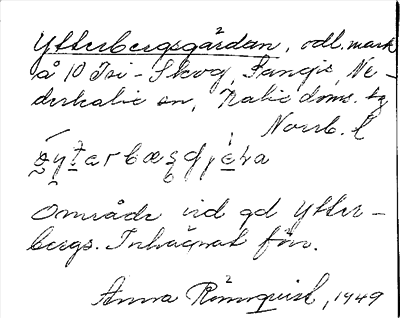 Ytterbergsgården, odl. mark
å 10 Tri-Skog, Fångis, Ne-
derkalix sn, Kalix doms. tg
Norrb. l

Område vid gd Ytter-
bergs. Inhägnat förr.
Anna Rönnqvist, 1949